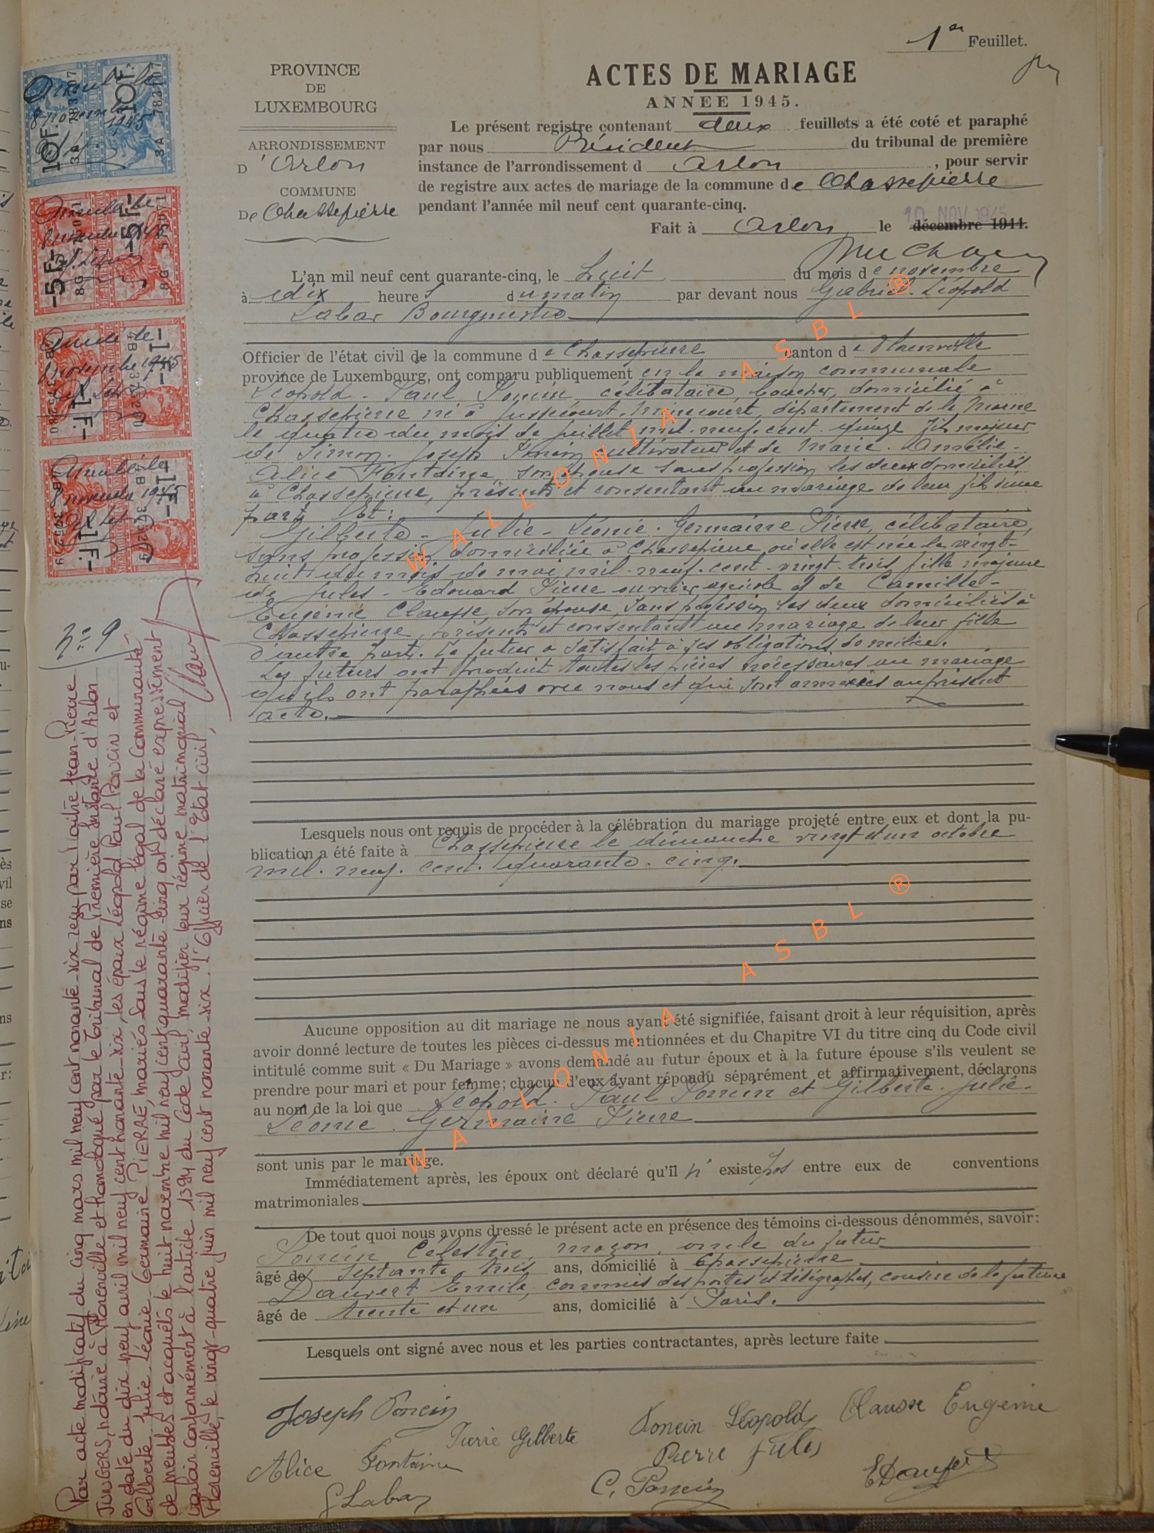 1er Feuillet.
PROVINCE
DE
LUXEMBOURG
ARRONDISSEMENT
D'Arlon
COMMUNE
De Chassepierre
ACTES DE MARIAGE
ANNEE 1945.
Le présent registre contenant deux feuillets a été coté et paraphé
par nous Président du tribunal de première
instance de l'arrondissement d Arlon, pour servir
de registre aux actes de mariage de la commune de Chassepierre
pendant l'année mil neuf cent quarante-cinq.
Fait à Arlon le décembre 1944.
10 NOV 1945
L'an mil neuf cent quarante-cinq, le huit du mois de novembre
à dix heures du matin par devant nous Gabriel-Léopold
Labar Bourgmestre
Officier de l'état civil de la commune de Chassepierre canton de Florenville
province de Luxembourg, ont comparu publiquement en la maison communale
Léopold-Paul Poncin, célibataire, boucher, domicilié à
Chassepierre né à département de la Marne
le quatre du mois de juillet mil-neuf-cent-quinze fils majeur
de Simon-Joseph Poncin cultivateur et de Marie-Amélie-
Alice Fontaine son épouse sans profession les deux domiciliés
à Chassepierre, présents et consentant au mariage de leur fils d'une
part, Et:
Gilberte-Julie-Léonie-Germaine Pierre, célibataire,
sans profession domiciliée à Chassepierre, où elle est née le vingt-
huit du mois de mai mil-neuf-cent-vingt trois fille majeure
de Jules-Edouard Pierre ouvrier agricole et de Camille-
Eugénie Clausse, son épouse, sans profession, les deux domiciliés à
Chassepierre, présents et consentant au mariage de leur fille
d'autre part. Le futur a satisfait à ses obligations de milice.
Les futurs ont produit toutes les pièces nécessaires au mariage
qu'ils ont paraphées avec nous et qui sont annexées au présent
acte.
Lesquels nous ont requis de procéder à la célébration du mariage projeté entre eux et dont la pu-
blication a été faite à Chassepierre le dimanche vingt et un octobre
mil-neuf-cent-quarante-cinq.
Aucune opposition au dit mariage ne nous ayant été signifiée, faisant droit à leur réquisition, après
avoir donné lecture de toutes les pièces ci-dessus mentionnées et du Chapitre VI du titre cinq du Code civil
intitulé comme suit « Du Mariage » avons demandé au futur époux et à la future épouse s'ils veulent se
prendre pour mari et pour femme; chacun d'eux ayant répondu séparément et affirmativement, déclarons
au nom de la loi que Léopold-Paul Poncin et Gilberte-Julie-
Léonie-Germaine Pierre
sont unis par le mariage.
Immédiatement après, les époux ont déclaré qu'il n'existe pas entre eux de conventions
matrimoniales
De tout quoi nous avons dressé le présent acte en présence des témoins ci-dessous dénommés, savoir:
Poncin Célestin, maçon, oncle du futur
âgé de septante trois ans, domicilié à Chassepierre
Dauvert Emile, commis des postes et télégraphes, cousin de la future
âgé de trente et un ans, domicilié à Paris.
Lesquels ont signé avec nous et les parties contractantes, après lecture faite
Joseph Poncin
Pierre Gilberte
Poncin Léopold
Clausse Eugénie
Alice Fontaine
Pierre Jules
G Labar
C. Poncin
No 9
Par acte modificatif du cinq mars mil neuf cent nonante-six reçu par Maître Jean-Pierre
JUNGERS, notaire à Florenville et homologué par le Tribunal de Première Instance d'Arlon
en date du dix neuf avril mil neuf cent nonante-six, les époux Léopold Paul Poncin et
Gilberte Julie Léonie Germaine PIERRE, mariés sous le régime légal de la Communauté
de meubles et acquêts le huit novembre mil neuf cent quarante cinq ont déclaré expressément
vouloir conformément à l'article 1394 du Code civil, modifier leur régime matrimonial
Florenville, le vingt-quatre juin mil neuf cent nonante-six. L'Officier de l'Etat civil,
10F.
10F
-5F-
-5F-
-1F-
-1F-
-1F-
-1F-
WALLONIA ASBL ®
WALLONIA ASBL ®